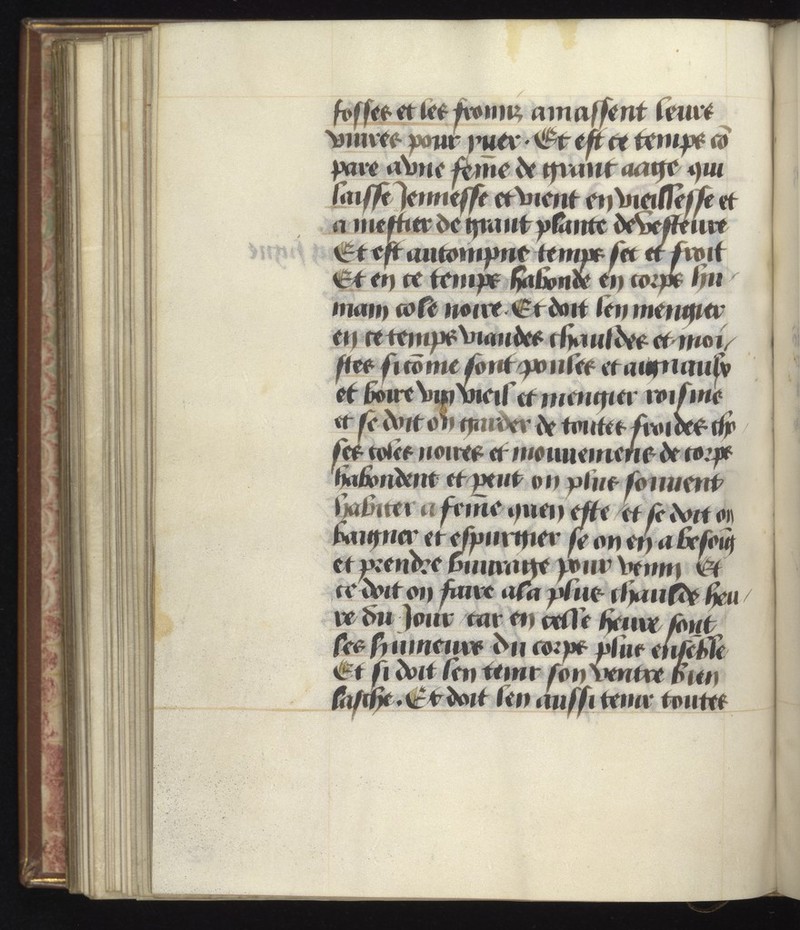 fosses et les fromiz amassent leurs
viures pour yuer. Et est ce temps cō
pare a vne feme de grant aage qui
laisse Jennesse et vient en vieillesse et
a mestier de grant plante de vesteure
Et est autompne temps sec et froit
Et en ce temps habonde en corps hu
main cole noire. Et doit len mengier
en ce temps viandes chauldes et moi
stes si cōme sont poules et aigniaulx
et boire vin vieil et mengier roisins
et se doit on garder de toutes froides cho
ses coles noires et mouuemens de corps
habondent et peut on plus souuent
habiter a feme quen este et se doit on
baigner et espurgier se on en a besoīg
et prendre buurage pour venin Et
ce doit on faire a la plus chaulde heu
re du Jour car en celle heure sont
les humeurs du corps plus ensēble
Et si doit len tenir son ventre bien
lasche. Et doit len aussi tenir toutes